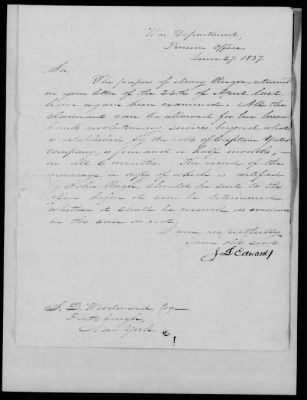 War Department,
Pension Office,
June 27. 1837.
Sir,
The papers of Mary returned
in your letter of the 24th of April last
have again been examined. All the
claimant can be allowed for her
bands revolutionary services beyond what
is established by the rolls of Captain
Company, is four and a half months,
in all 6 months. The record of the
marriage a copy of which is certified
by John should be sent to this
Office before it can be determined
whether it shall be received as evidence
in this case or not.
I am, respectfully
your obt servt
J L Edwards
S. D. Woodward, Esqr
Plattsburgh,
New York.